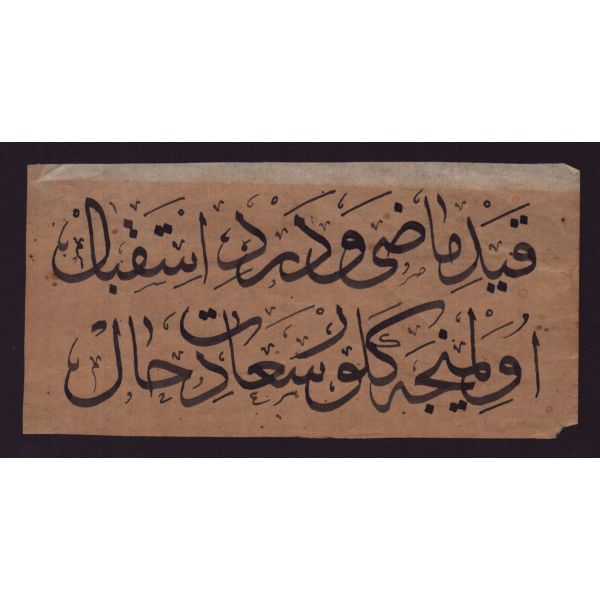 قَيْدِ مَاضِی وَ دَرْدِ اِسْتِقْبَال
اُولِمَیِنْجَه گلور سَعَادتِ حَال